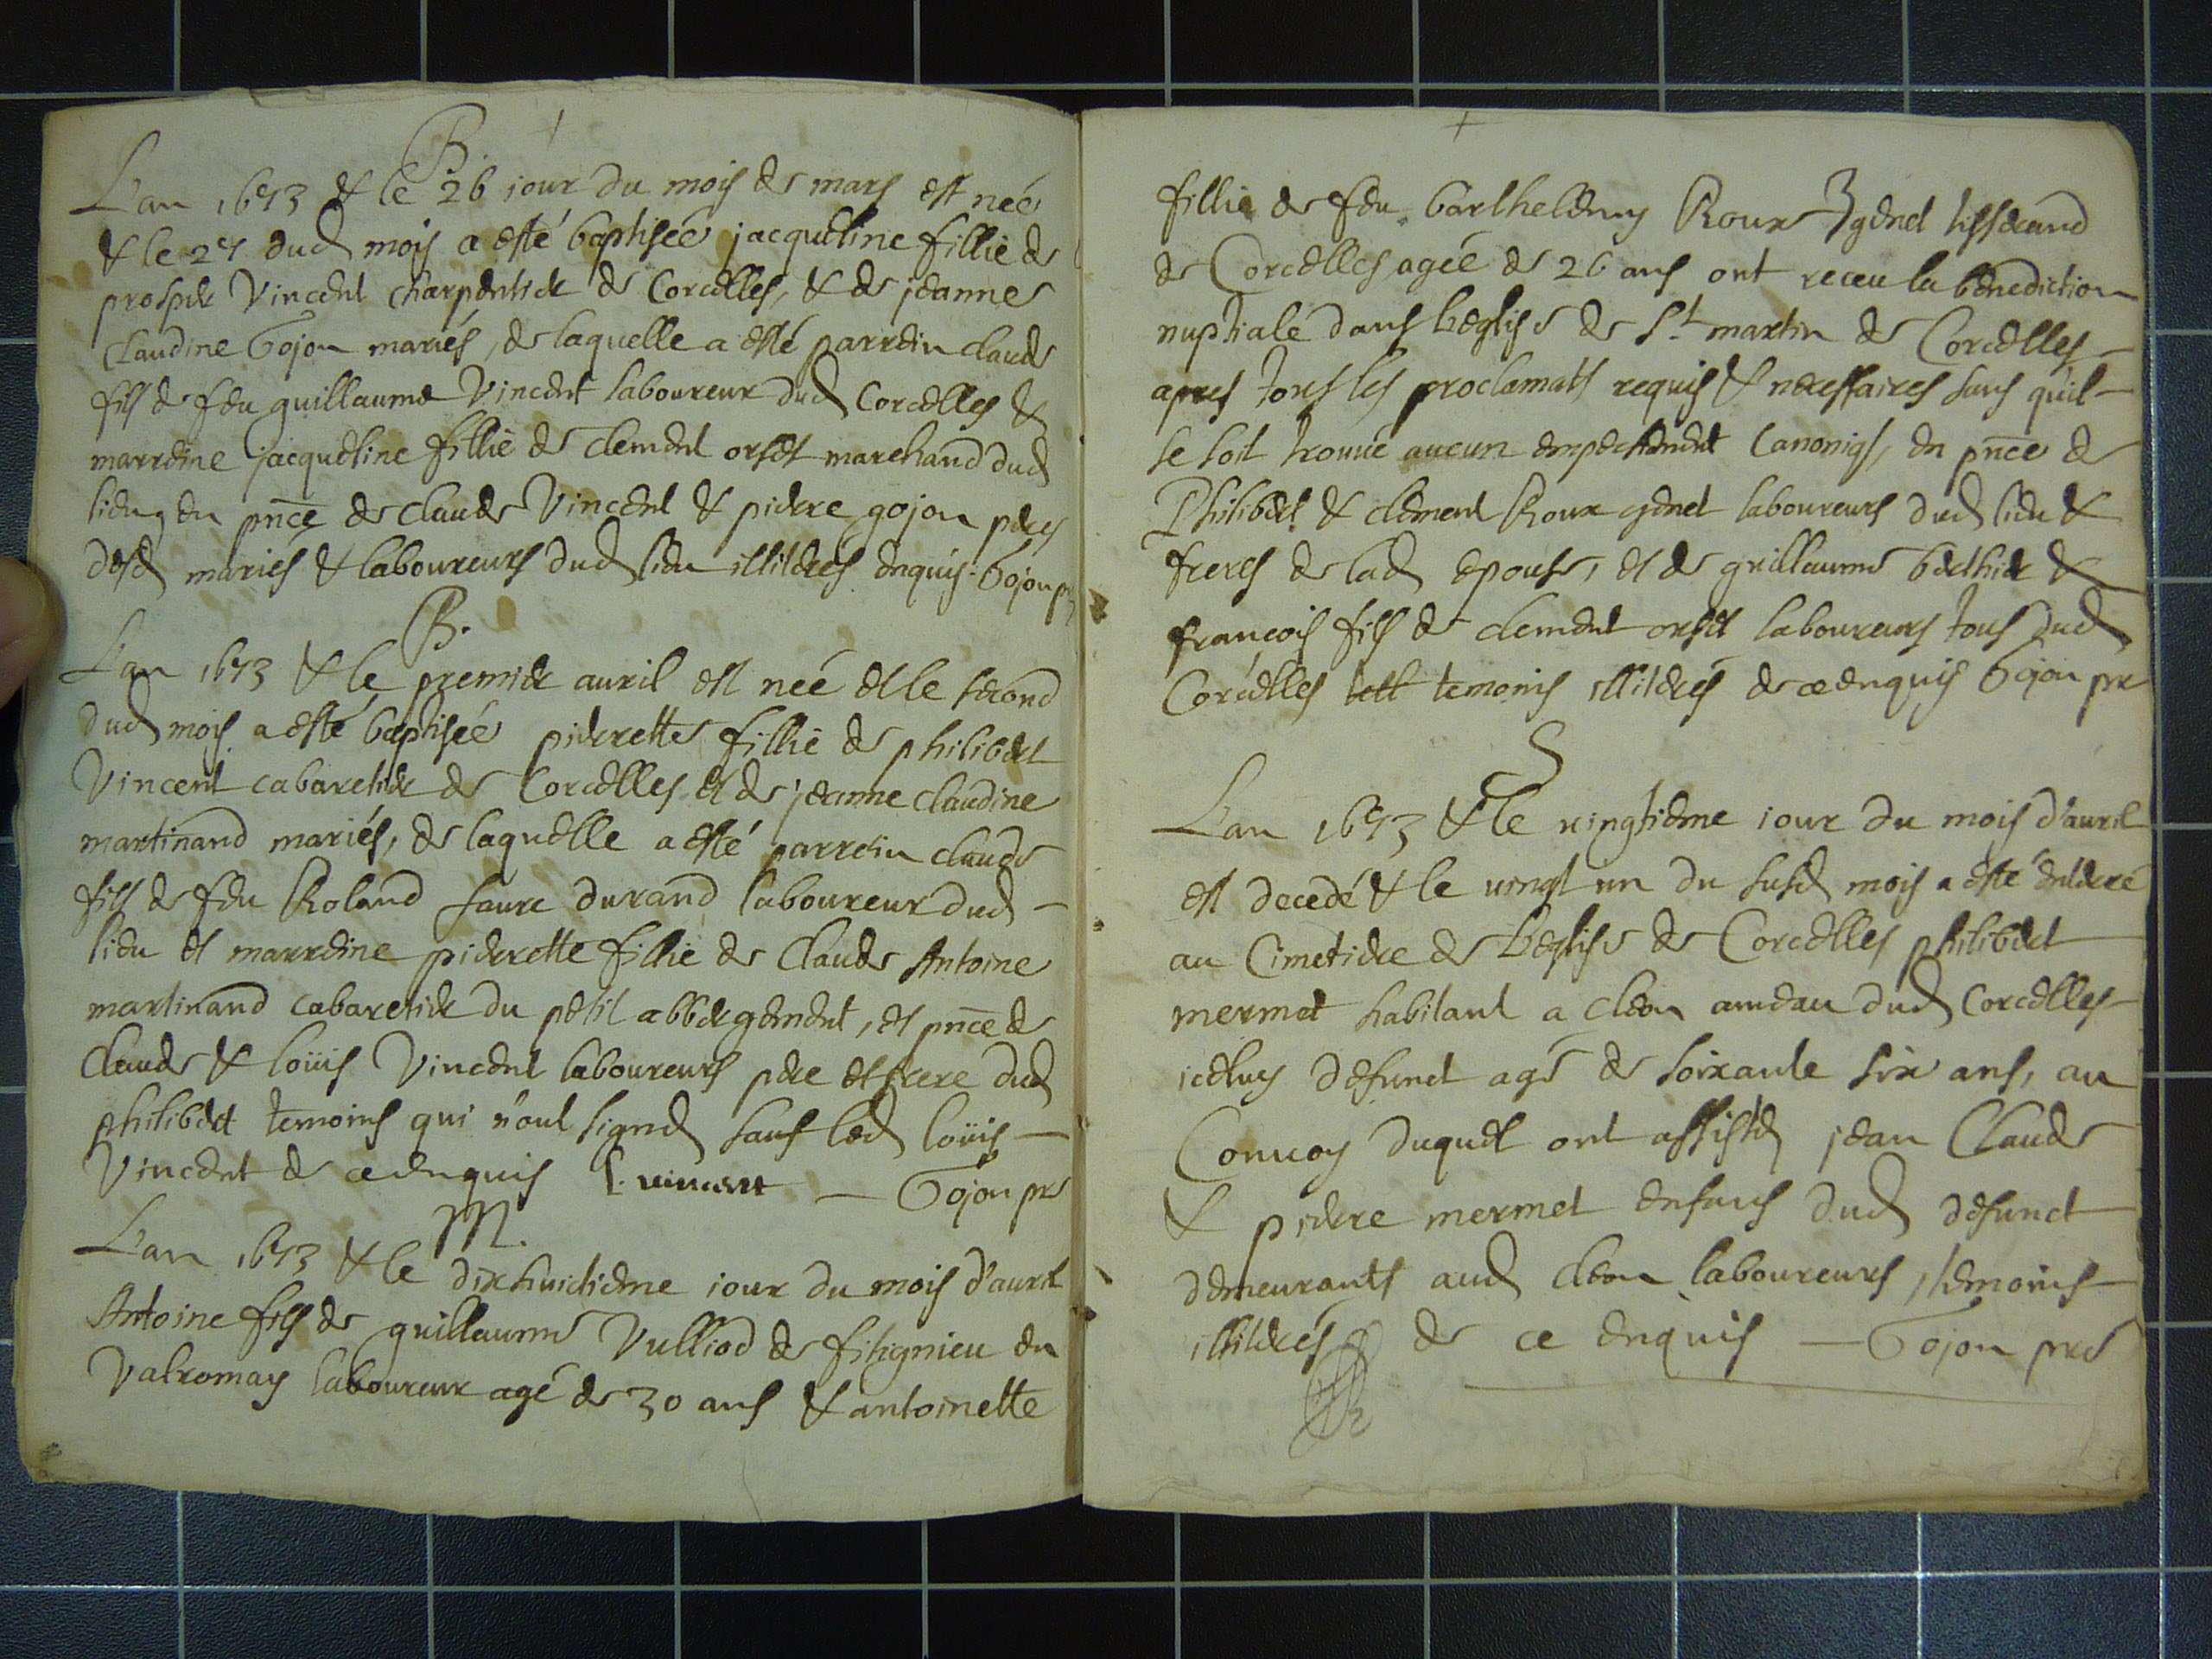 B.
L'an 1673 & le 26 iour du mois de mars est neé
& le 27 dud mois a esté baptiseé jacqueline fillie de
prosper Vincent charpentier de Corcelles, & de jeanne
Claudine Gojon mariés, de laquelle a esté parrein claude
fils de feu guillaume Vincent laboureur dud Corcelles &
marreine jacqueline fillie de clement orset marchand dud
lieu, en pnce de claude Vincent & pierre gojon peres
desd mariés & laboureurs dud lieu illiterés enquis. Gojon
B.
L'an 1673 & le premier auril est neé et le second
dud mois a esté baptiseé pierrette fillie de philibert
Vincent cabaretier de Corcelles et de jeanne claudine
martinand mariés, de laquelle a esté parrein claude
fils de feu Roland faure durand laboureur dud
lieu et marreine pierrette fillie de Claude Antoine
martinand cabaretier du petit abbergement, et pnce de
Claude & loüis Vincent laboureurs pere et frere dud
philibert temoins qui n'ont signé sauf led loüis
Vincent de ce enquis l. vincent Gojon pre
M.
L'an 1673 & le dixhuictieme iour du mois d'auril
Antoine fils de guillaume Vulliod de fitignieu en
Valromay laboureur agé de 30 ans & antoinette
fillie de feu barthelemy Roux genet tisserand
de Corcelles ageé de 26 ans ont receu la benediction
nuptiale dans l'eglise de St martin de Corcelles
apres tous les proclamats requis & necessaires sans qu'il
se soit trouué aucun empechement Canoniq, en pnce de
Philibert & clement Roux genet laboureurs dud lieu &
freres de lad epouse, et de guillaume berthier &
francois fils de clement orset laboureurs tous dud
Corcelles temoins illiterés de ce enquis Gojon pre
S
L'an 1673 & le vingtieme iour du mois d'auril
est decedé & le vingt un du susd mois a esté enterré
au Cimetiere de l'eglise de Corcelles philibert
mermet habitant a cleon ameau dud Corcelles
iceluy defunct agé de soixante six ans, au
Conuoy duquel ont assisté jean Claude
& pierre mermet enfans dud defunct
demeurants aud cleon laboureurs, temoins
illiterés de ce enquis Gojon pre